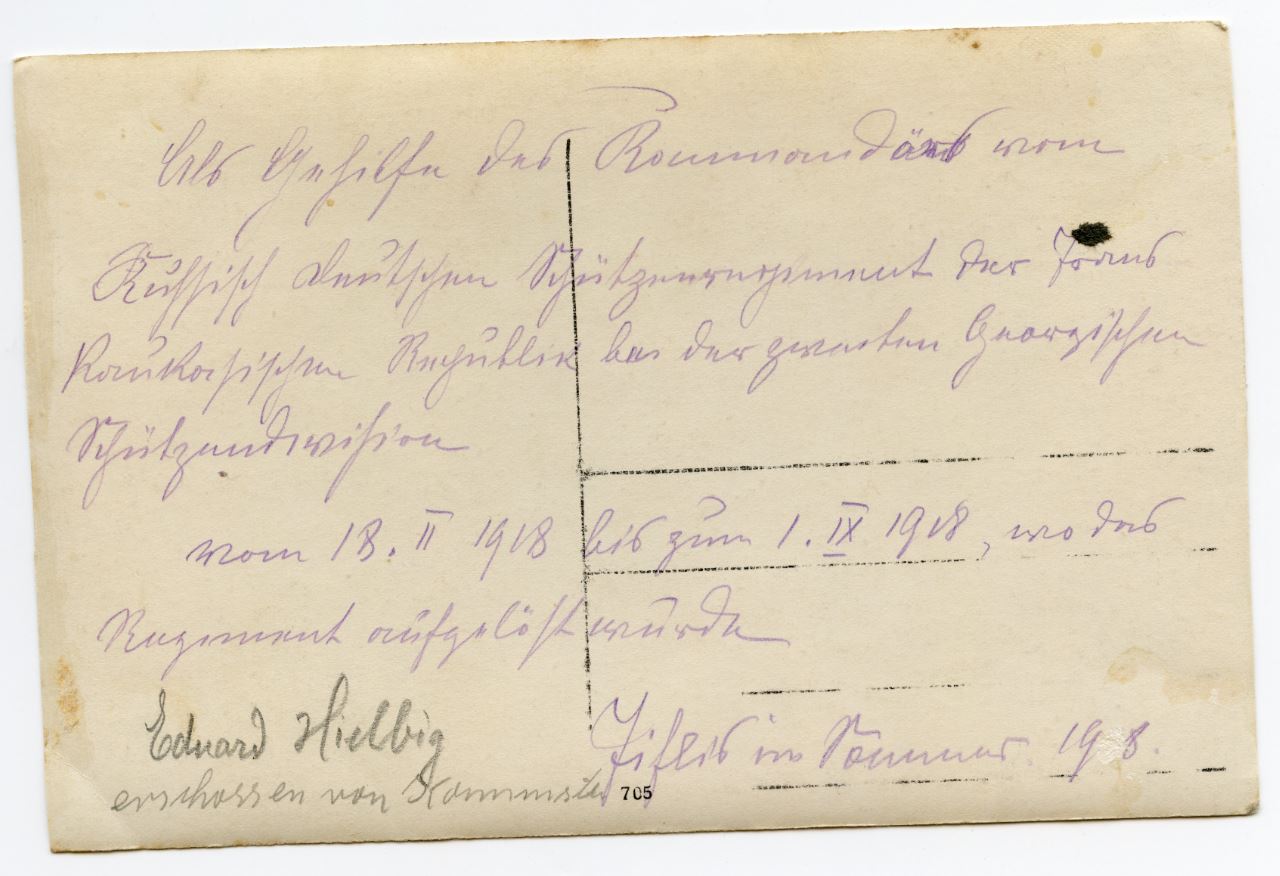 Als Gehilfe des Kommandärs vom
Russisch deutschen Schützenregiment der Trans
kaukasischen Republik bei der zweiten Georgischen
Schützendivision
vom 18. II 1918 bis zum 1. IX 1918, wo das
Regiment aufgelöst wurde
Tiflis im Sommer. 1918.
Eduard Hielbig
erschossen von Kommisten
705